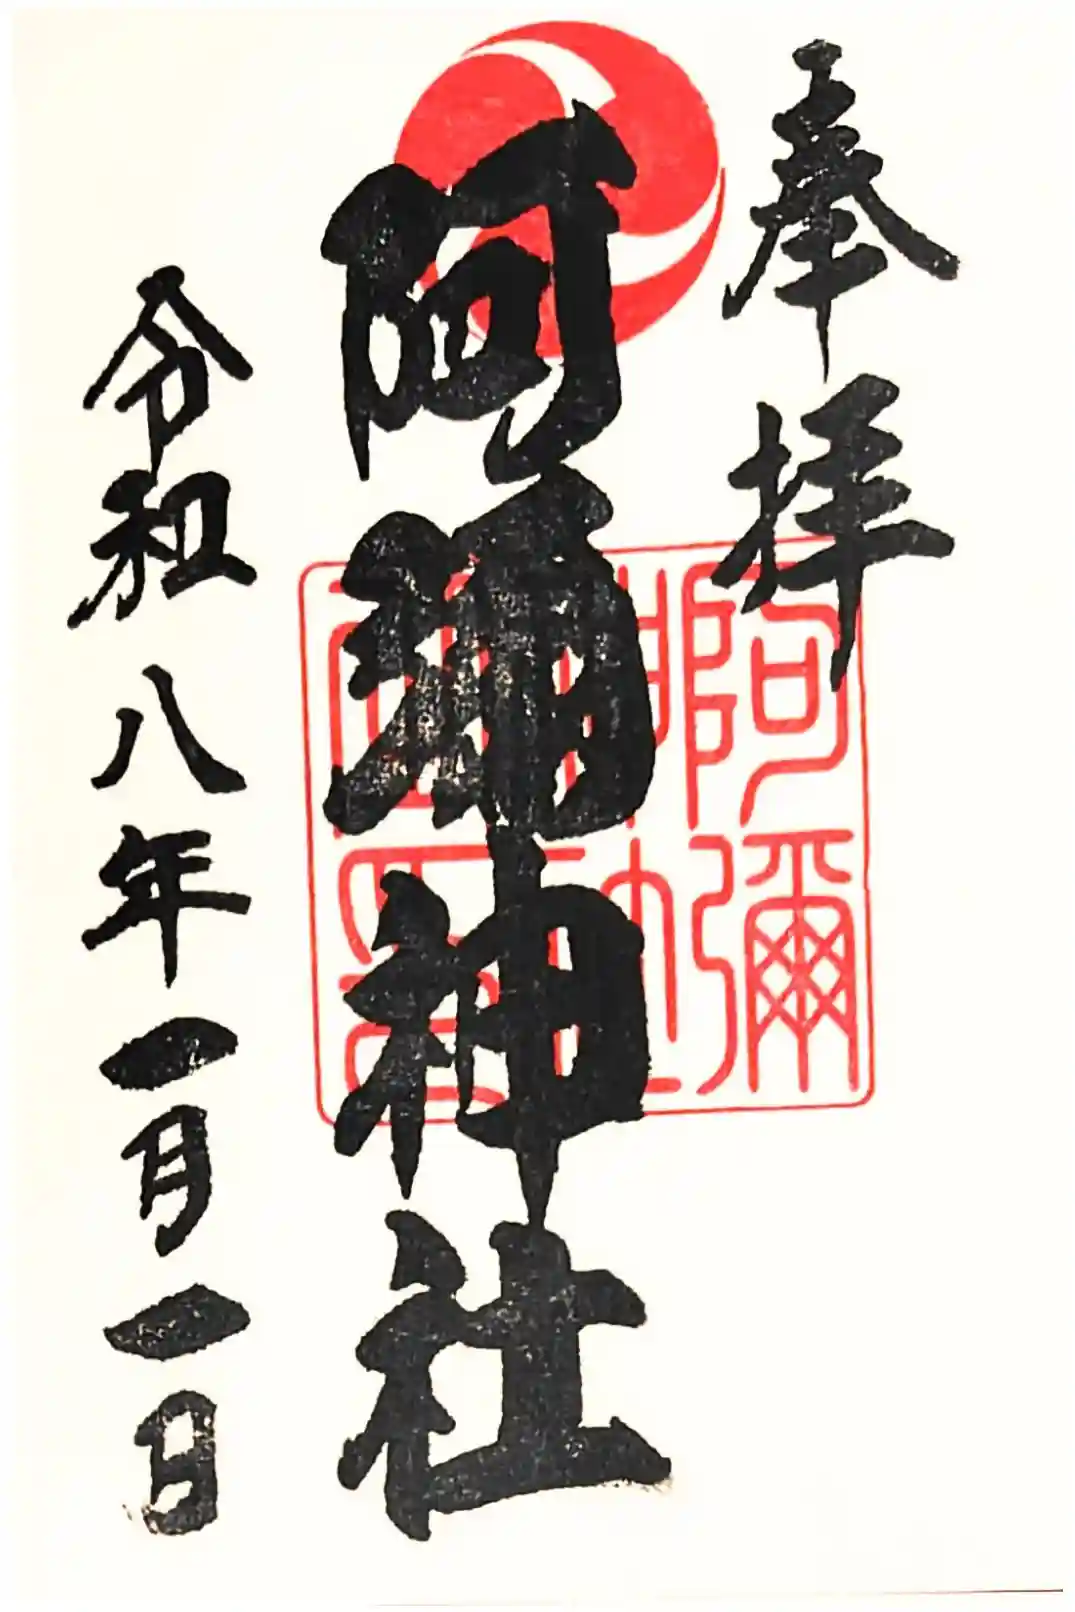 奉拝
阿彌神社
令和八年一月一日
阿彌